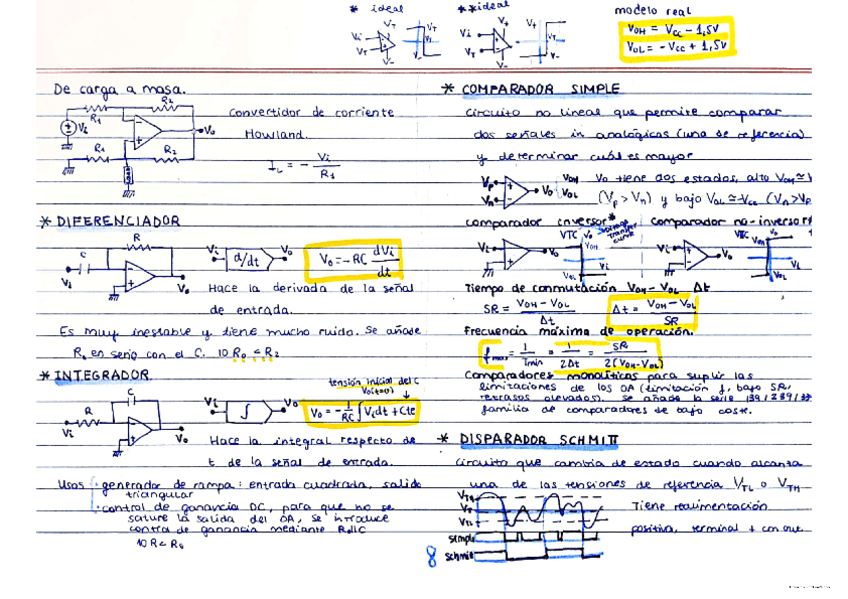 * ideal
**ideal
modelo real
VOH = VCC - 1,5V
VOL = -VCC + 1,5V
De carga a masa.
Convertidor de corriente
Howland.
IL = - Vi / R1
* DIFERENCIADOR
d/dt
Vo = -RC dVi/dt
Hace la derivada de la señal
de entrada.
Es muy inestable y tiene mucho ruido. Se añade
en serie con el C.
* INTEGRADOR
tensión inicial del C
Vo = - 1/RC ∫ Vi dt + Cte
Hace la integral respecto de
t de la señal de entrada.
Usos: generador de rampa: entrada cuadrada, salida
triangular
control de ganancia DC, para que no se
sature la salida del OA, se introduce
contra de ganancia mediante
* COMPARADOR SIMPLE
Circuito no lineal que permite comparar
dos señales in analógicas (una de referencia)
y determinar cuál es mayor
Vo tiene dos estados, alto VOH ≃
(Vp > Vn) y bajo VOL ≃ -Vcc (Vn > Vp
comparador inversor*
comparador no-inversor
VTC
VTC
Tiempo de conmutación VOH - VOL Δt
SR = VOH - VOL / Δt
Δt = VOH - VOL / SR
Frecuencia máxima de operación.
fmax = 1/Tmin = 1/2Δt = SR / 2(VOH - VOL)
Comparadores monolíticos para suplir las
limitaciones de los OA (limitación f, bajo SR,
retrasos elevados). Se añade la serie 139/239/33
familia de comparadores de bajo coste.
* DISPARADOR SCHMITT
Circuito que cambia de estado cuando alcanza
una de las tensiones de referencia VTL o VTH
Tiene realimentación
positiva, terminal + con que
simple
Schmit
8